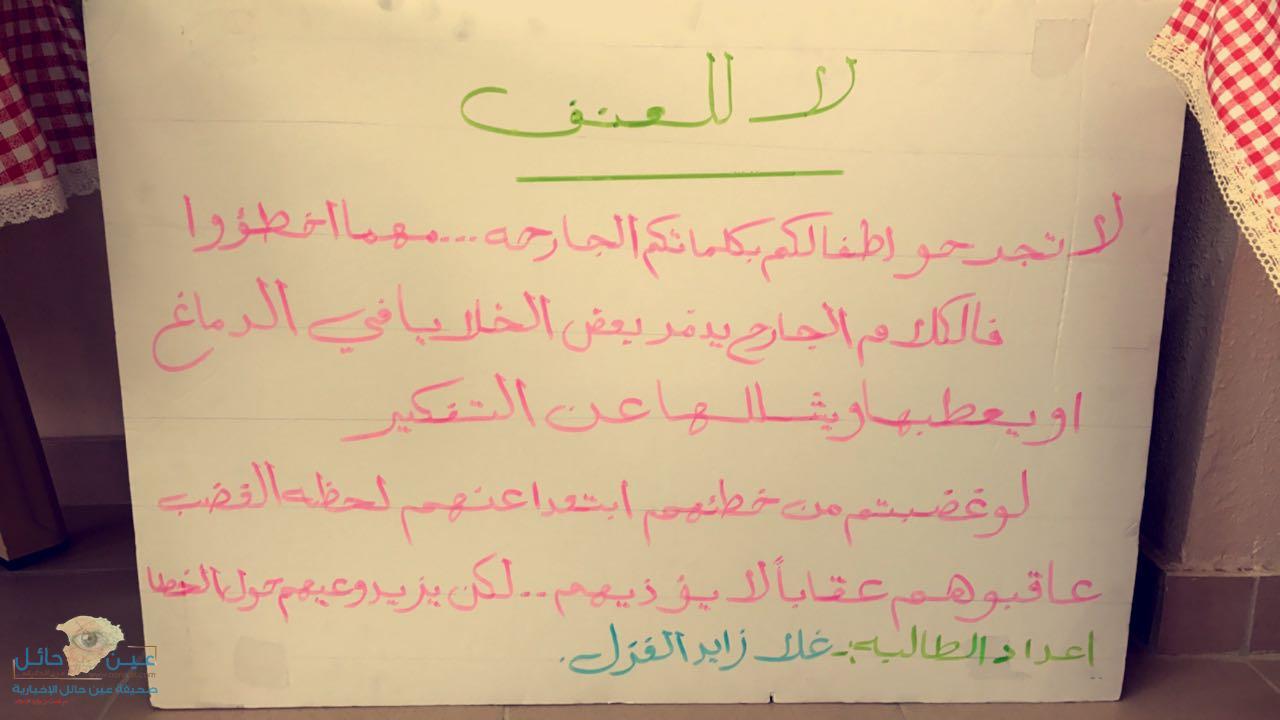 لا للعنف
لا تجرحوا اطفالكم بكلماتكم الجارحه...مهما اخطؤوا
فالكلام الجارح يدمر بعض الخلايا في الدماغ
او يعطبها ويشللها عن التفكير
لو غضبتم من خطئهم ابتعدا عنهم لحظه الغضب
عاقبوهم عقاباً لا يؤذيهم..لكن يزيد وعيهم حول الخطا
اعداد الطالبه:- غلا زايد الغزل.
عين حائل
صحيفة عين حائل الإخبارية